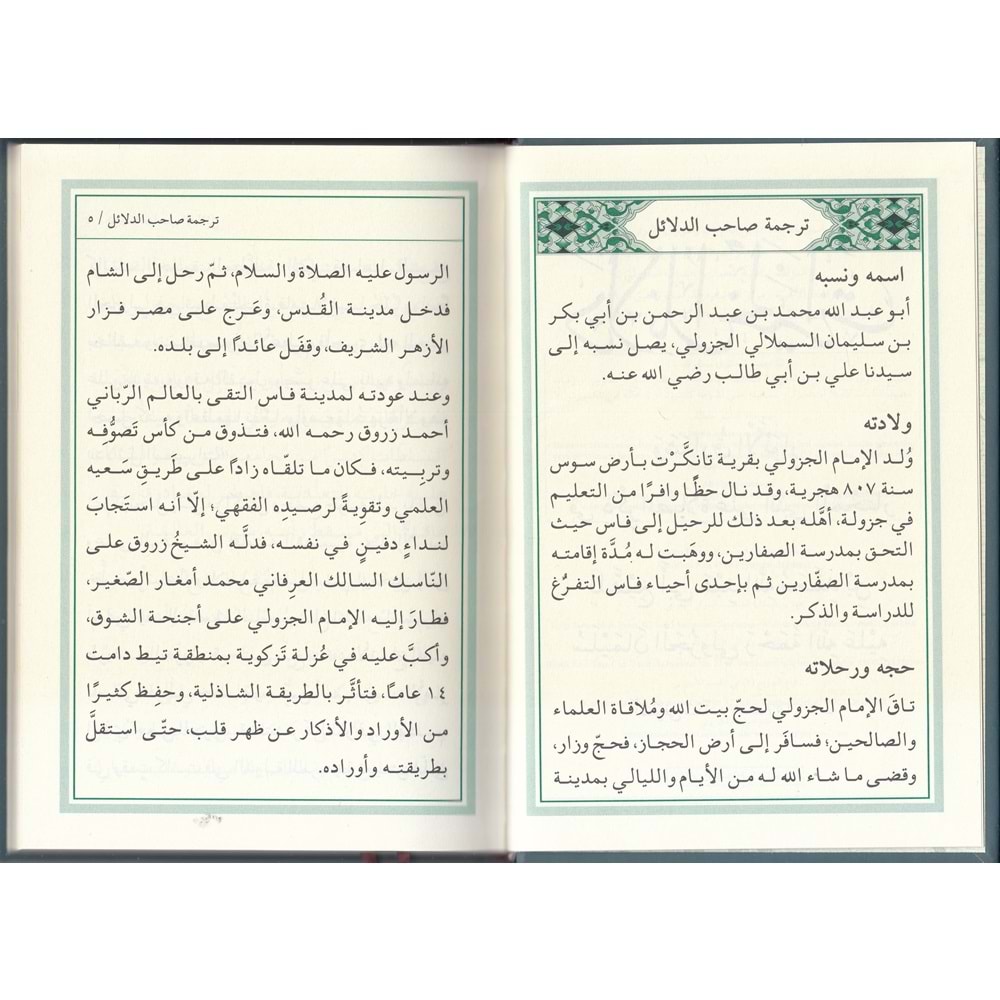 ترجمة صاحب الدلائل
اسمه ونسبه
أبو عبد الله محمد بن عبد الرحمن بن أبي بكر
بن سليمان السملالي الجزولي، يصل نسبه إلى
سيدنا علي بن أبي طالب رضي الله عنه.
ولادته
وُلد الإمام الجزولي بقرية تانكَّرْت بأرض سوس
سنة ٨٠٧ هجرية، وقد نال حظًّا وافرًا من التعليم
في جزولة، أهَّله بعد ذلك للرحيل إلى فاس حيث
التحق بمدرسة الصفارين، ووهَبت له مُدَّة إقامته
بمدرسة الصفّارين ثم بإحدى أحياء فاس التفرُّغ
للدراسة والذكر.
حجه ورحلاته
تاقَ الإمام الجزولي لحجّ بيت الله ومُلاقاة العلماء
والصالحين؛ فسافَر إلى أرض الحجاز، فحجّ وزار،
وقضى ما شاء الله له من الأيام والليالي بمدينة
ترجمة صاحب الدلائل / ٥
الرسول عليه الصلاة والسلام، ثمّ رحل إلى الشام
فدخل مدينة القُدس، وعَرج على مصر فزار
الأزهر الشريف، وقفَل عائداً إلى بلده.
وعند عودته لمدينة فاس التقى بالعالم الرّباني
أحمد زروق رحمه الله، فتذوق من كأس تَصوُّفِه
وتربِيته، فكان ما تلقّاه زاداً على طَريقِ سَعيه
العلمي وتقوِيةً لرصيدِه الفقهي؛ إلّا أنه استَجابَ
لنداءٍ دفينٍ في نفسه، فدلَّه الشيخُ زروق على
النّاسك السالك العِرفاني محمد أمغار الصّغير،
فطارَ إليه الإمام الجزولي على أجنحة الشوق،
وأكبَّ عليه في عُزلة تَزكوية بمنطقة تيط دامت
١٤ عاماً، فتأثَّر بالطريقة الشاذلية، وحفِظ كثيرًا
من الأوراد والأذكار عن ظهر قلب، حتّى استقلَّ
بطريقته وأوراده.